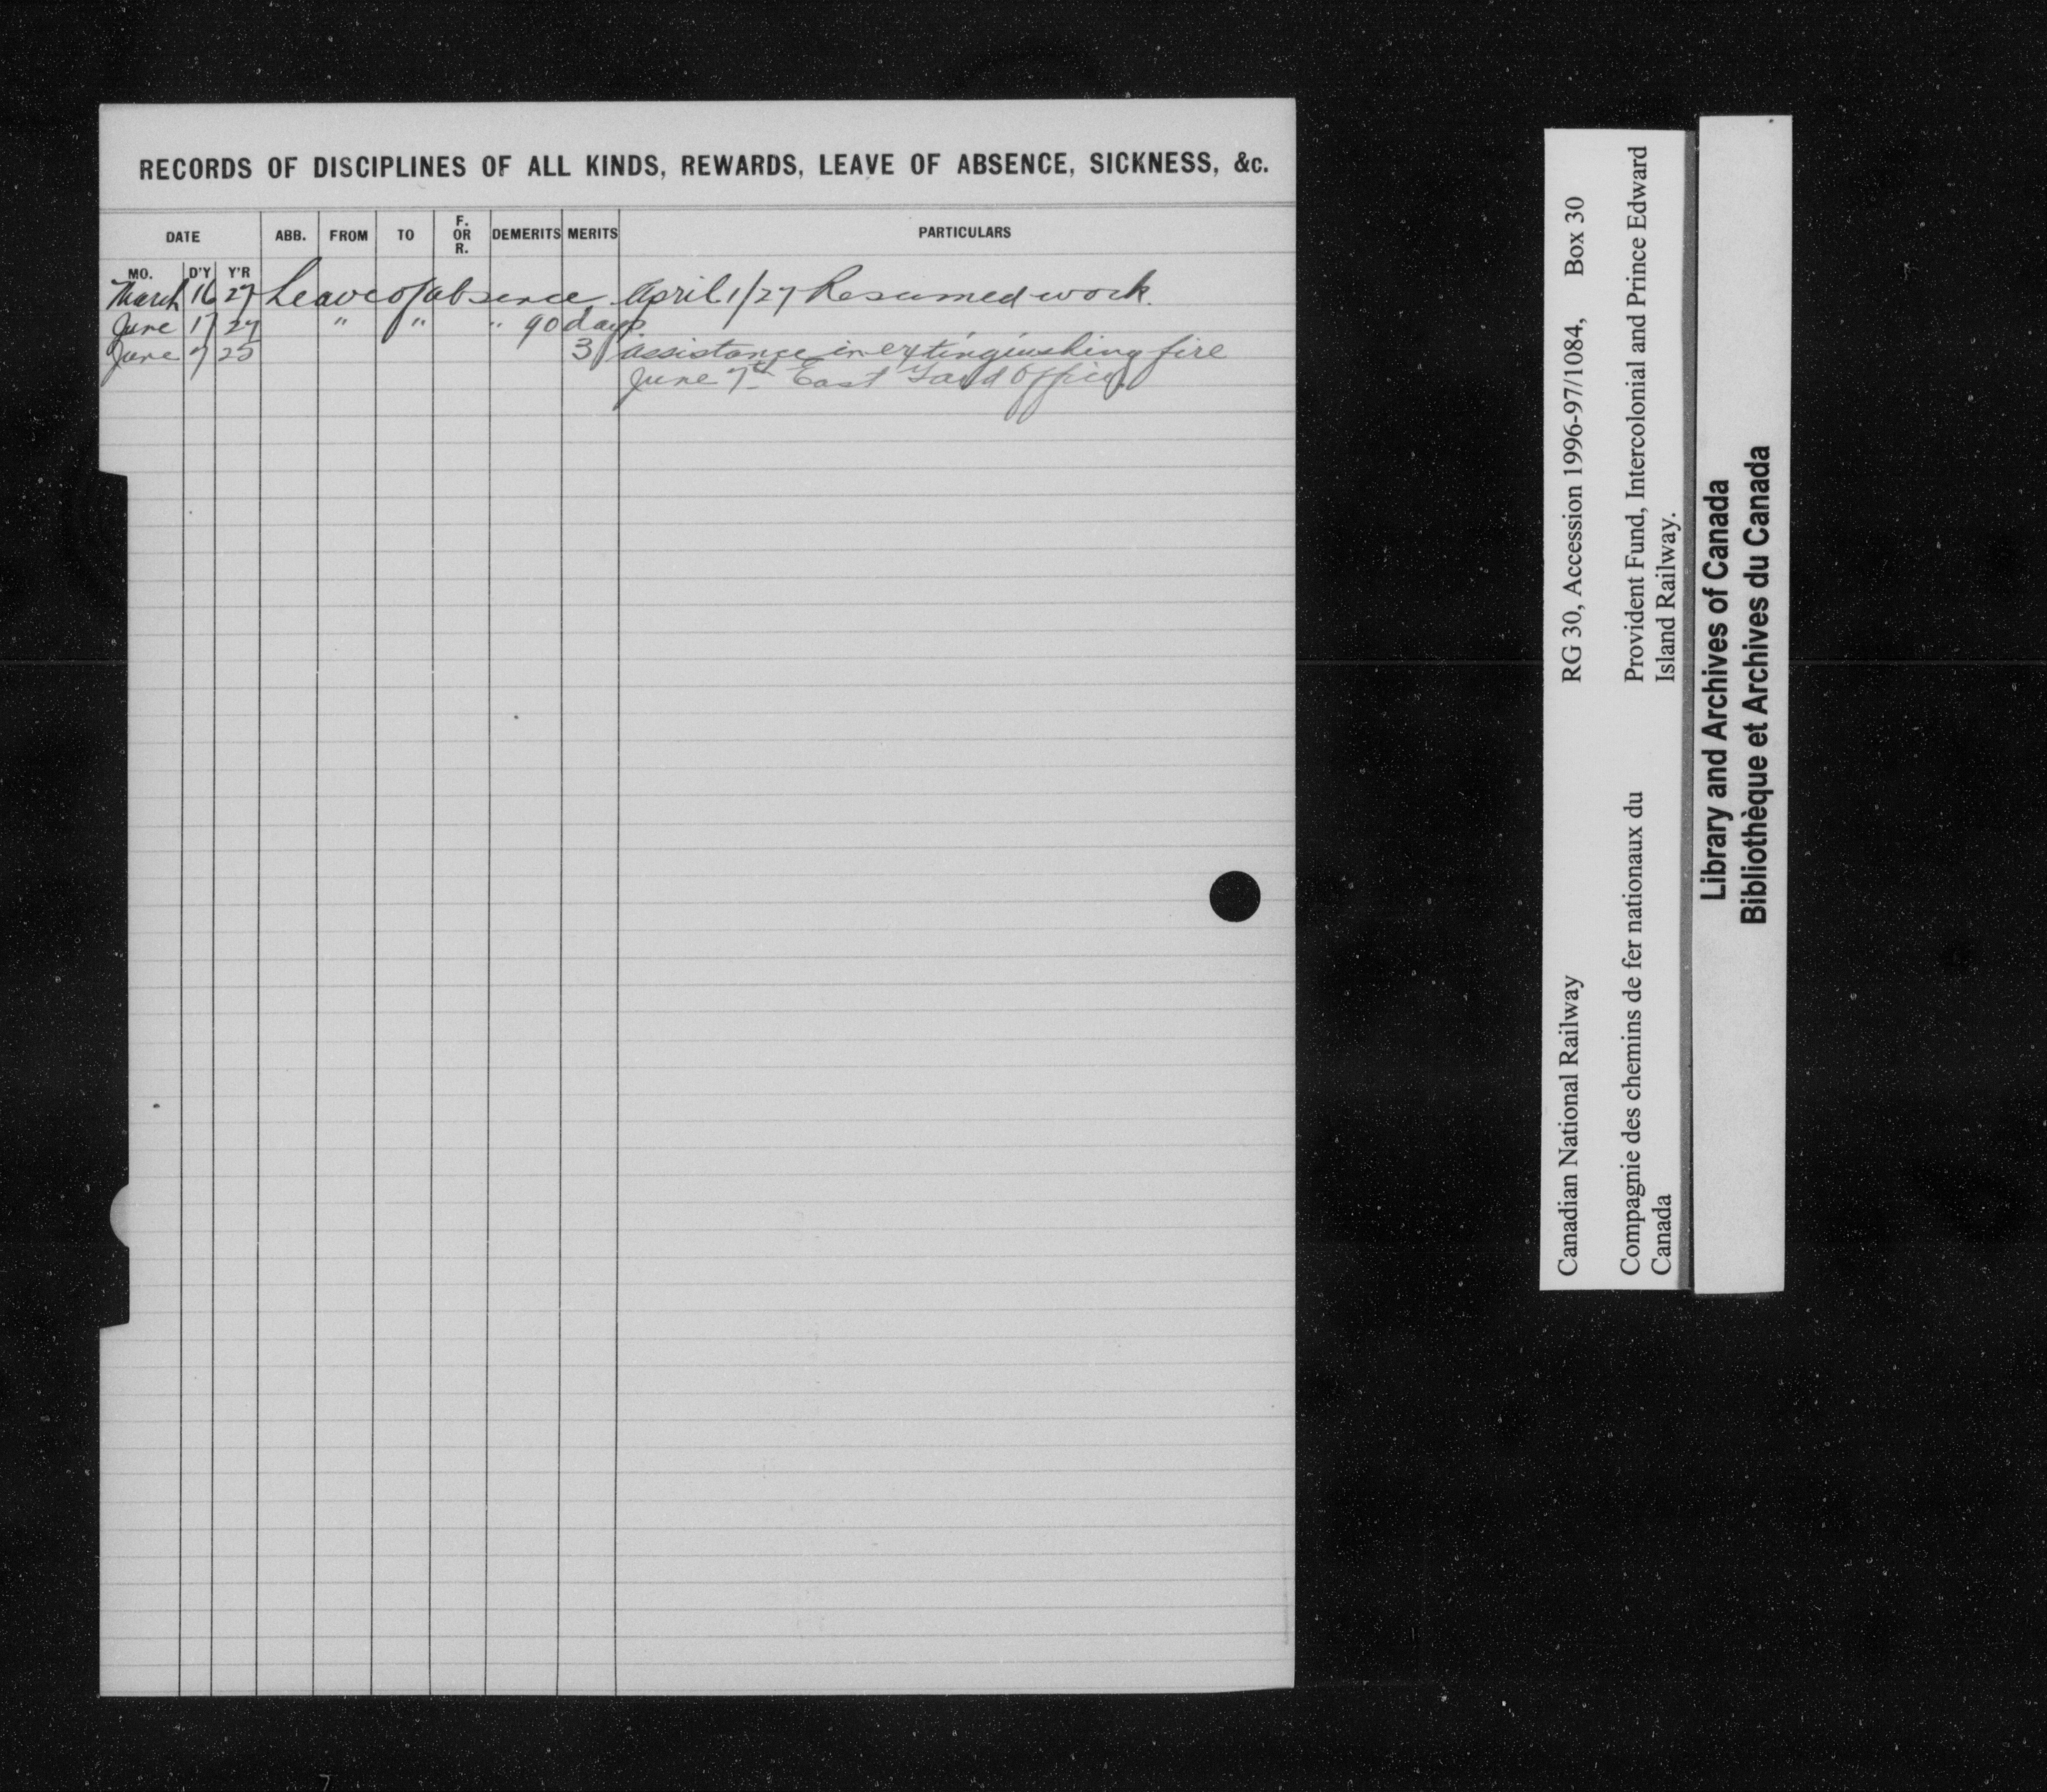 RECORDS OF DISCIPLINES OF ALL KINDS, REWARDS, LEAVE OF ABSENCE, SICKNESS, &c.
DATE ABB. FROM TO F. OR R. DEMERITS MERITS PARTICULARS
MO. D'Y Y'R
March 16 27 Leave of absence April 1/27 Resumed work.
June 17 27 " " " 90 days.
June 7 25 3 assistance in extinguishing fire
June 7th East Yard Office.
Canadian National Railway RG 30, Accession 1996-97/1084, Box 30
Compagnie des chemins de fer nationaux du Provident Fund, Intercolonial and Prince Edward
Canada Island Railway.
Library and Archives of Canada
Bibliothèque et Archives du Canada